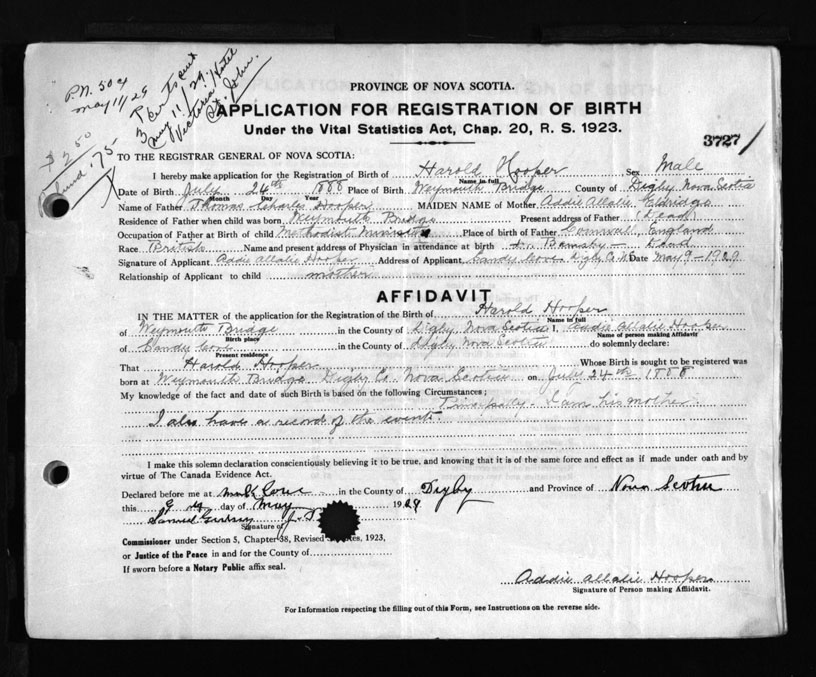 P.N. 504
May 11/29
May 11/29.
Victoria Hotel
St. John.
$2.50
.75
PROVINCE OF NOVA SCOTIA.
APPLICATION FOR REGISTRATION OF BIRTH
Under the Vital Statistics Act, Chap. 20, R. S. 1923.
3727
TO THE REGISTRAR GENERAL OF NOVA SCOTIA:
I hereby make application for the Registration of Birth of Harold Hooper Sex Male
Name in full
Date of Birth July 24th 1888 Place of Birth Weymouth Bridge County of Digby Nova Scotia
Month Day Year
Name of Father Thomas Charles Hooper MAIDEN NAME of Mother Addie Allalie Eldridge
Residence of Father when child was born Weymouth Bridge Present address of Father (Dead)
Occupation of Father at Birth of child Methodist Minister Place of birth of Father Cornwall, England
Race British Name and present address of Physician in attendance at birth Dr. Barnaby - Dead
Signature of Applicant Addie Allalie Hooper Address of Applicant Sandy Cove Digby Co. N.S. Date May 9 - 1929
Relationship of Applicant to child mother
AFFIDAVIT
IN THE MATTER of the application for the Registration of the Birth of Harold Hooper
Name in full
of Weymouth Bridge in the County of Digby Nova Scotia I, Addie Allalie Hooper
Birth place Name of person making Affidavit
of Sandy Cove in the County of Digby Nova Scotia do solemnly declare:
Present residence
That Harold Hooper Whose Birth is sought to be registered was
born at Weymouth Bridge Digby Co. Nova Scotia on July 24th 1888
My knowledge of the fact and date of such Birth is based on the following Circumstances;
Principally - I am his mother
I also have a record of the event.
I make this solemn declaration conscientiously believing it to be true, and knowing that it is of the same force and effect as if made under oath and by
virtue of The Canada Evidence Act.
Declared before me at Cove in the County of Digby and Province of Nova Scotia
this 9th day of May 1929
Samuel J.
Signature of
Commissioner under Section 5, Chapter 38, Revised 1923,
or Justice of the Peace in and for the County of
If sworn before a Notary Public affix seal.
Addie Allalie Hooper
Signature of Person making Affidavit.
For Information respecting the filling out of this Form, see Instructions on the reverse side.